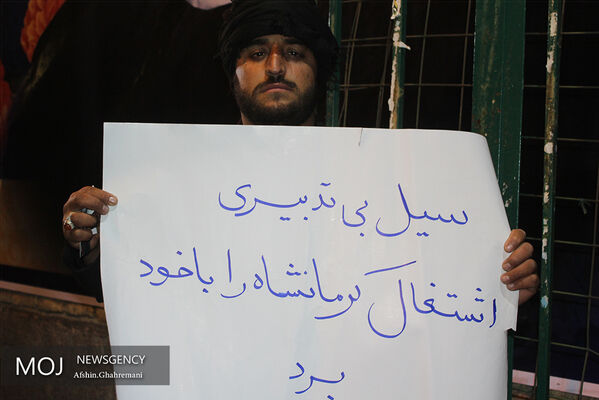 سیل بی تدبیری
اشتغال کرمانشاه را با خود
برد
MOJ NEWSGENCY
Afshin.Ghahremani